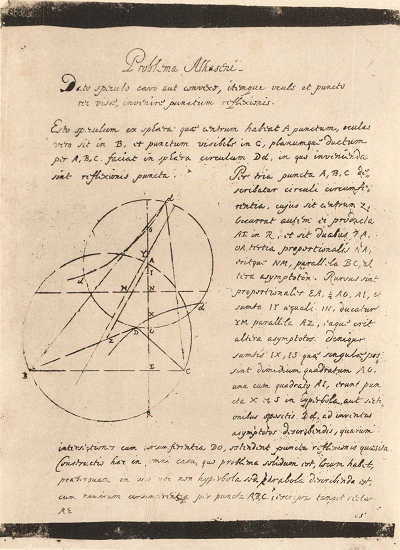 Problema Alhaseni
Dato speculo cavo aut convexo, itemque oculo et puncto
rei visae, invenire punctum reflexionis.
Esto speculum ex sphaera quae centrum habeat A punctum, oculus
vero sit in B, et punctum visibile in C, planumque ductum
per A, B, C. faciat in sphaera circulum Dd, in quo invenienda
sint reflexionis puncta.
Per tria puncta A, B, C de
scribatur circuli circumfe
rentia, cujus sit centrum Z,
occurrat autem ei producta
AE in R, et sit duabus RA,
OA, tertia proportionalis NA,
eritque NM, parall. la BC, al
tera asymptotôn. Rursus sint
proportionales EA, ½ AO, AI, et
sumta IY aequali IN, ducatur
YM parall. la AZ, eaque erit
altera asymptotos. Denique
sumtis IX, IS quae singulae pos
sint dimidium quadratum AO,
una cum quadrato AI, erunt punc
ta X et S in hyperbola, aut sect
onibus oppositis Dd, ad inventas
asymptotos describendis, quarum
intersectiones cum circumferentia DO, ostendent puncta reflexionis quaesita
Constructio haec in omni casu, quo problema solidum est, locum habet,
praeterquam in uno ubi non hyperbola sed parabola describenda est,
cum nimirum circumferentia per puncta ABC descripta tangit rectam
AE
d
Y
A
I
M
N
d
X
Z
D
O
B
E
C
R